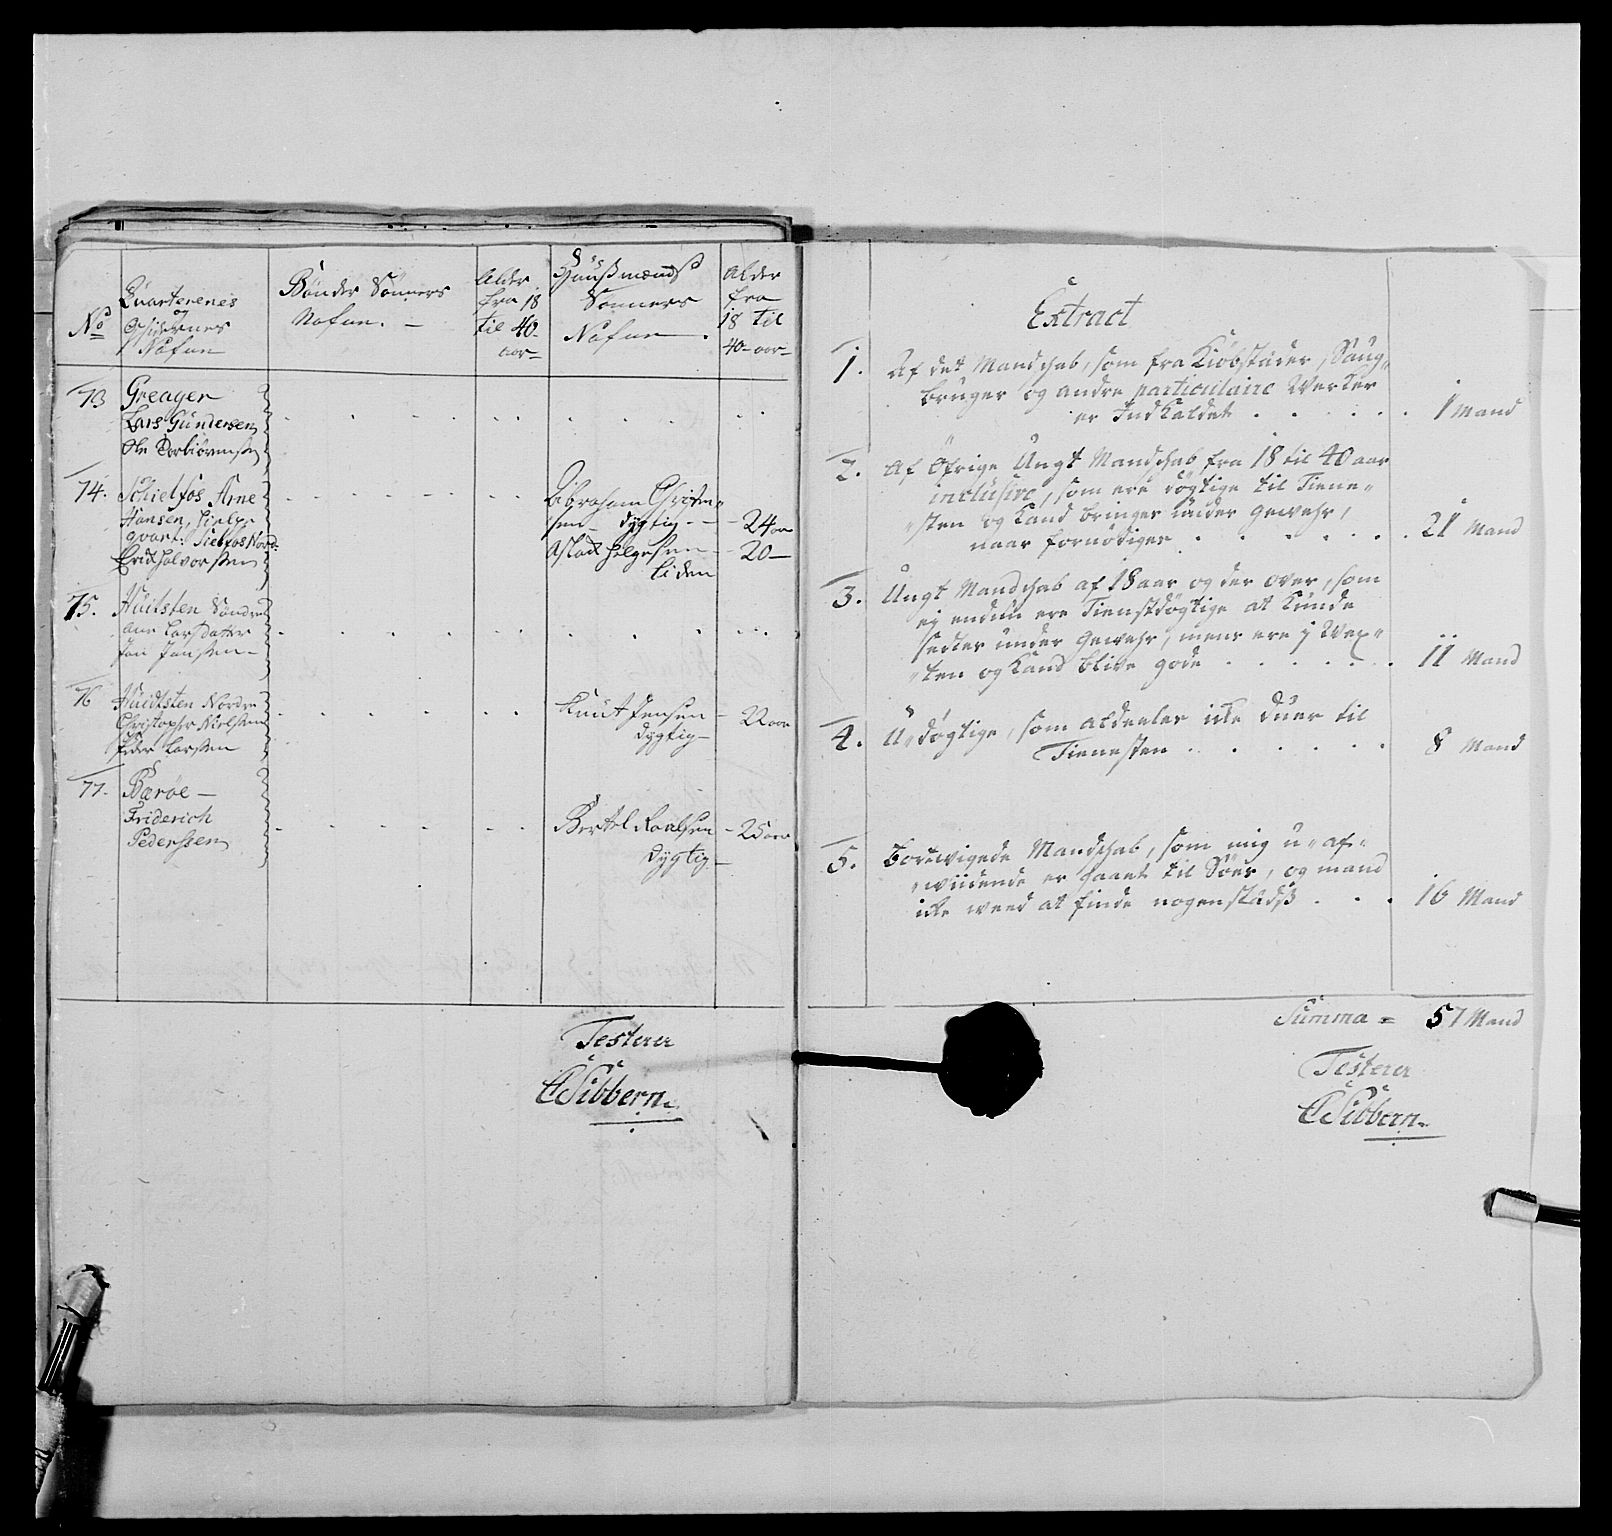 No
Quarterenes
og
Gifternes
Nafne
Bønder Sønners
Nafne. –
Alder
fra 18
til 40
aar–
Huusmænds
Sønners
Nafne.
Alder
fra
18 til
40– aar–
73
Greager
Lars Gundersen
Ole Torbiørnsen
74.
Schielfos Arne
Hansen, hielpe
qvart: Sielfos Nord:
Erick Halvorsen
Abraham Christen-
sen– dygtig – – 24 aar
Aslack Helgesen – 20 –
liden
75.
Huitsten Søndre
Ane Lars Datter
Jan Jansen –
76
Huidtsten Nordre
Christopher Nielsen
Peder Larsen
Knut Jensen – 22 aar
dygtig –
77.
Bærøe –
Friderich
Pederssen
Bertel Roalsen – 25 aar
dygtig –
Testerer
CSibbern.
Extract
1. Af det Mandskab, som fra Kiøbstæder, Saug-
bruger og andre particulaire Verker
er Indkaldet . . . . . 1 Mand
2. Af Øfrige Ungt Mandskab fra 18 til 40 aar
inclusive, som ere døgtige til Tiene-
sten og kand bringes under gewehr,
naar fornødiges . . . . . 21 Mand
3. Ungt Mandskab af 18 aar og der over, som
ej endnu ere Tienstdøgtige at kunde
settes under Gewehr, mens ere j Wex-
ten og kand blive gode . . . . . 11 Mand
4. U-døgtige, som aldeeles icke duer til
Tienesten . . . . . 8 Mand
5. Bortvigede Mandskab, som mig u-af-
widende er gaaet til Søes, og mand
icke weed at finde nogenstædss . . . 16 Mand
Summa = 57 Mand
Testerer
CSibbern.